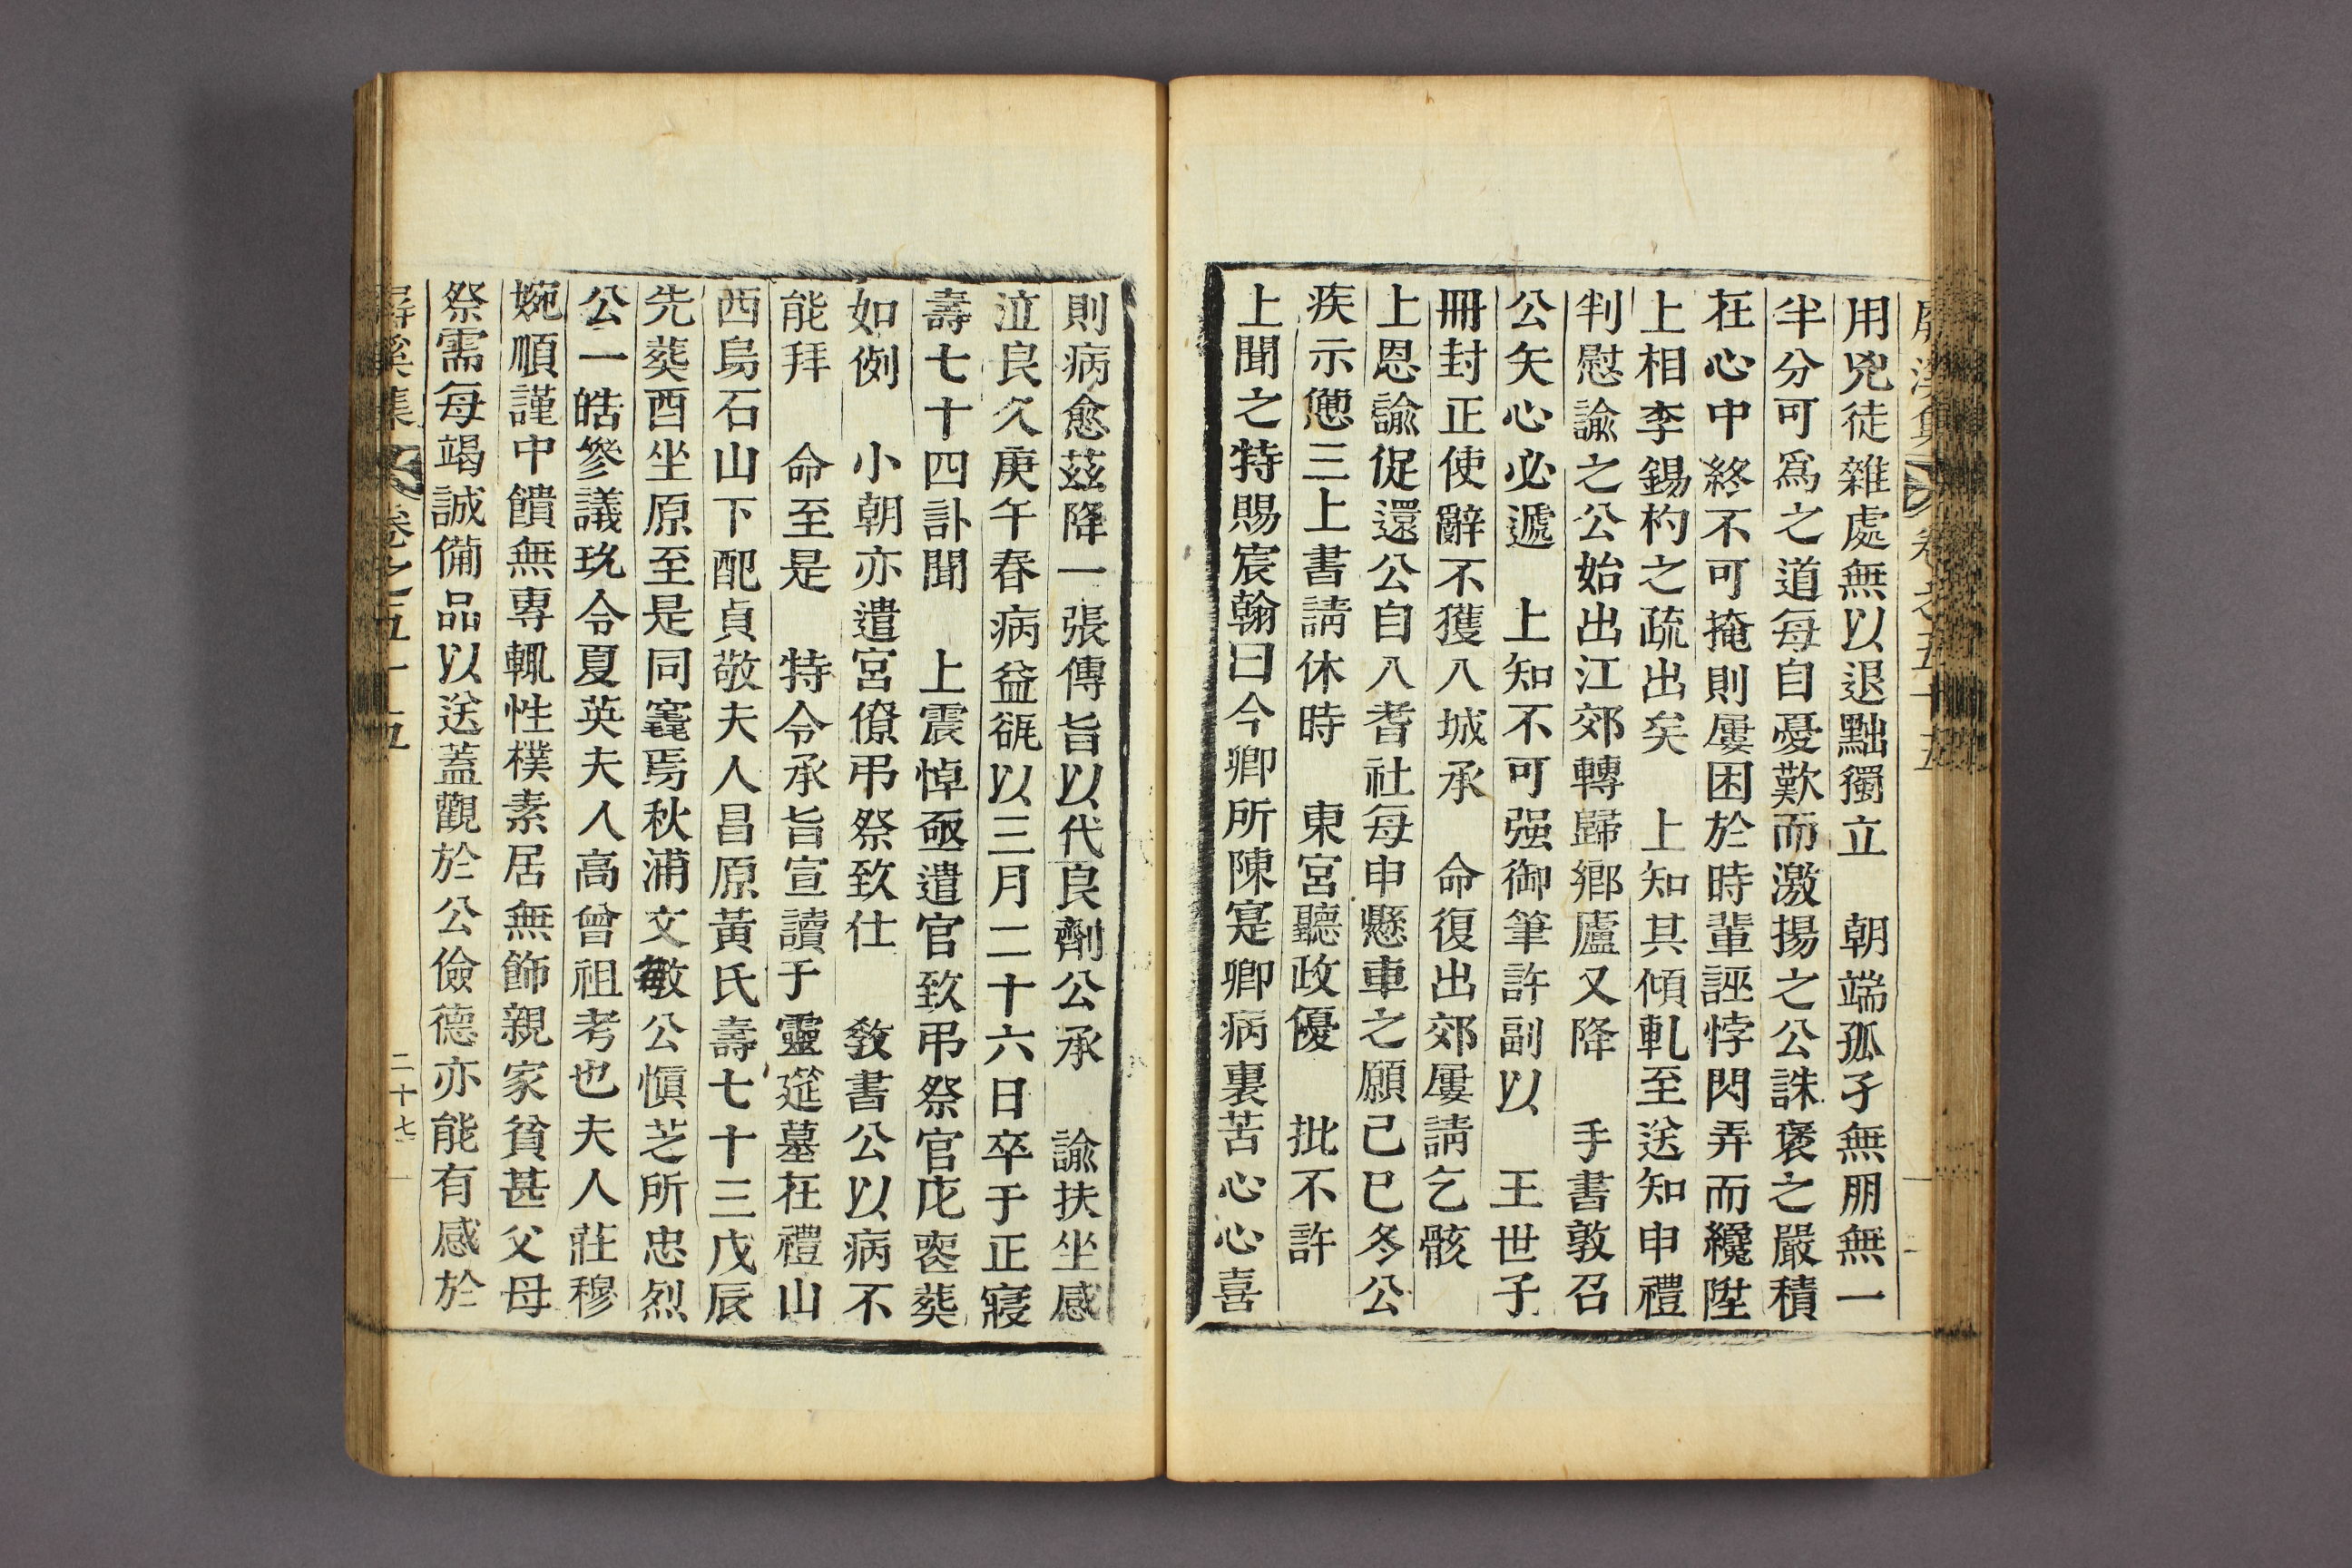 用兇徒雜處無以退黜獨立　朝端孤孑無朋無一
半分可爲之道每自憂歎而激揚之公誅褒之嚴積
在心中終不可掩則屢困於時輩誣悖閃弄而纔陞
上相李錫杓之疏出矣　上知其傾軋至送知申禮
判慰諭之公始出江郊轉歸鄉廬又降　手書敦召
公矢心必遞　上知不可强御筆許副以　王世子
冊封正使辭不獲八城承　命復出郊屢請乞骸
上恩諭促還公自八耆社每申懸車之願己巳冬公
疾示憊三上書請休時　東宮聽政優　批不許
上聞之特賜宸翰曰今卿所陳寔卿病裏苦心心喜
則病愈茲降一張傳旨以代良劑公承　諭扶坐感
泣良久庚午春病益㼌以三月二十六日卒于正寢
壽七十四訃聞　上震悼亟遣官致弔祭官庀喪葬
如例　小朝亦遣宮僚弔祭致仕　敎書公以病不
能拜　命至是　特令承旨宣讀于靈筵墓在禮山
西烏石山下配貞敬夫人昌原黃氏壽七十三戊辰
先葬酉坐原至是同竁焉秋浦文敏公愼芝所忠烈
公一皓參議玧令夏英夫人高曾祖考也夫人莊穆
婉順謹中饋無專輒性樸素居無飾親家貧甚父母
祭需每竭誠備品以送蓋觀於公儉德亦能有感於
屛溪集　卷之五十五　二十七